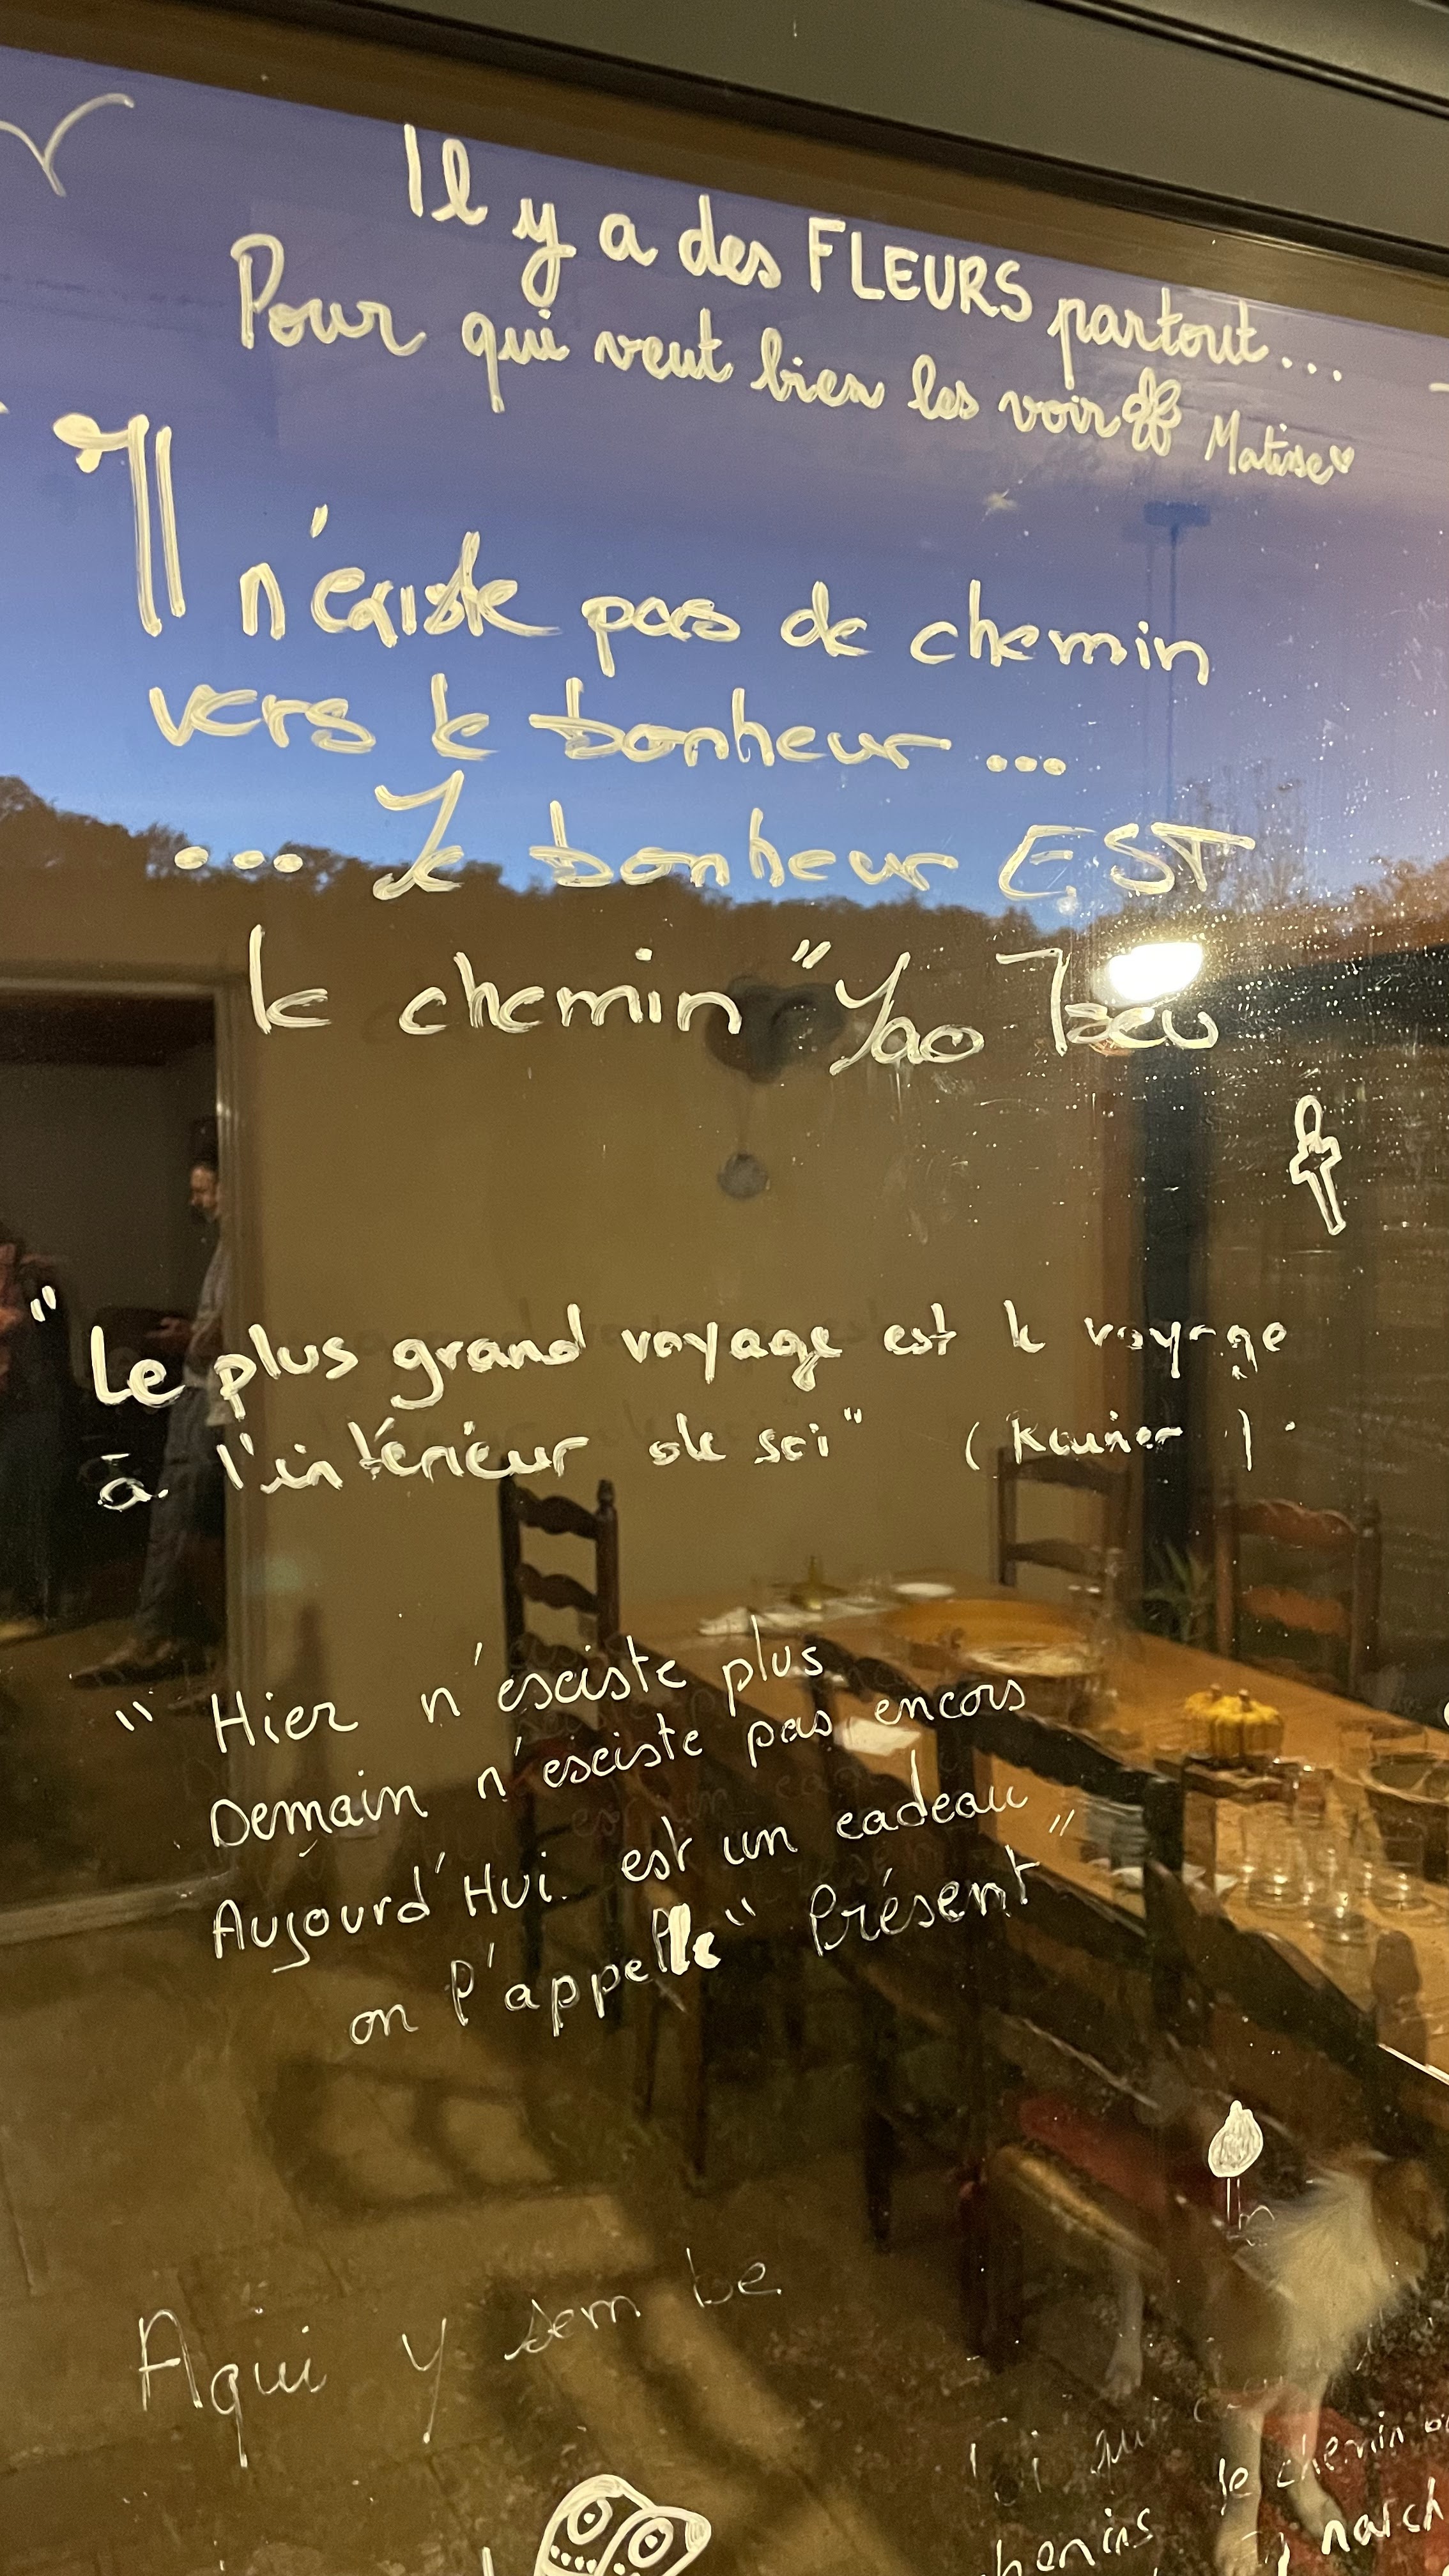 Il y a des FLEURS partout...
Pour qui veut bien les voir Matisse
Il n'existe pas de chemin
vers le bonheur...
... Le bonheur EST
le chemin "Yao Tzeu
"Le plus grand voyage est le voyage
à l'intérieur de soi"
"Hier n'esciste plus
Demain n'esciste pas encors
Aujourd'Hui est un cadeau
on l'appelle "Présent"
Aqui y sem be
le chemin
chemins